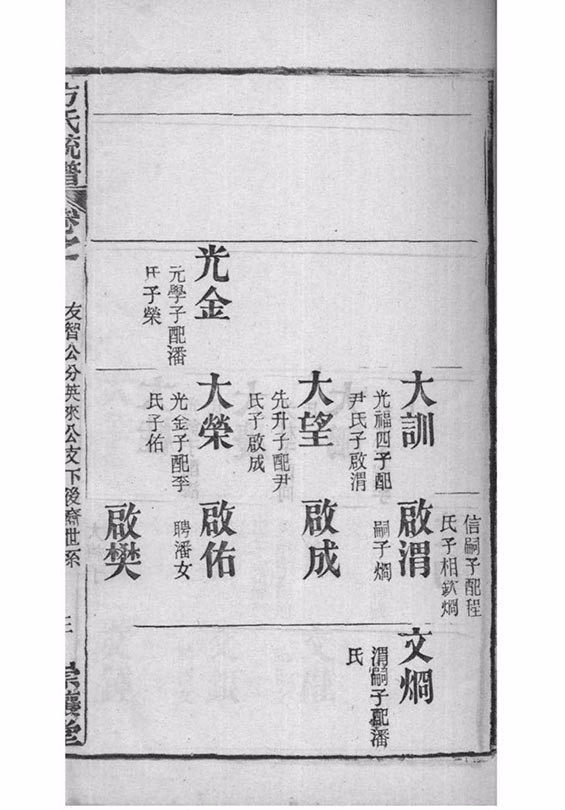 信嗣子配程
氏子相欽烱
大訓
光福四子配
尹氏子啟渭
啟渭
嗣子烱
文烱
渭嗣子配潘
氏
大望
先升子配尹
氏子啟成
啟成
光金
元學子配潘
氏子榮
大榮
光金子配李
氏子佑
啟佑
聘潘女
啟樊
方氏統譜
卷之
友智公分英來公支下後齋世系